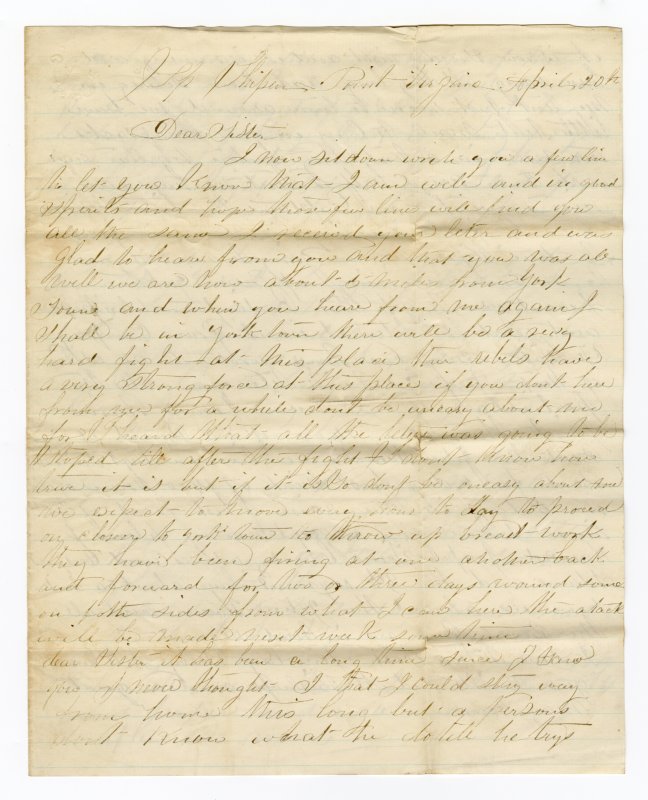 Ship Point Virginia April 20th
Dear Sister
I now sit down write you a few line
to let you Know that I am well and in good
spirits and hope these few line will find you
all the same I received your leter and was
Glad to hear from you and that you was all
well we are now about 5 miles from York
Toune and when you heare from me again I
shall be in York town there will be a very
hard fight at this place the rebels have
a very strong force at this place if you dont here
from me for a while dont be uneasy about me
for I heard that all the was going to be
stoped till after the fight I dont Know how
true it is but if it is So dont be oneasy about me
we expect to move every hour to day to proced
on closer to york town to throw up breast work
they have been firing at one another back
and forward for two or three days wound some
on both sides from what I can here the atack
will be made next week some time
dear Sister it has been a long time since I
you I never thought I that I could stay way
from home this long but a persons
dont Know what he do till he trys